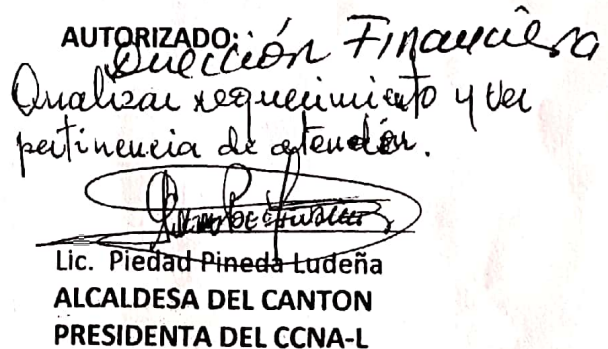 AUTORIZADO:
Dirección Financiera
Analizar requerimiento y ver
pertinencia de atención.
Lic. Piedad Pineda Ludeña
ALCALDESA DEL CANTON
PRESIDENTA DEL CCNA-L